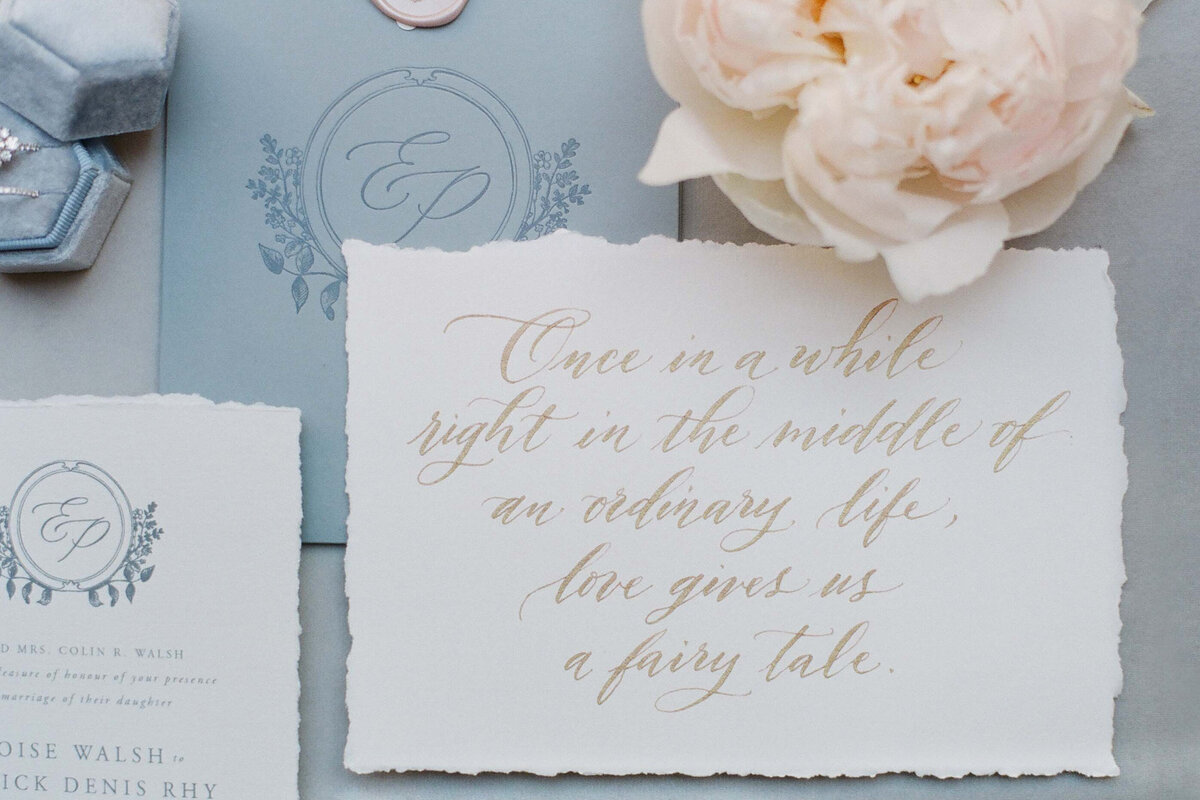 EP
Once in a while
right in the middle of
an ordinary life,
love gives us
a fairy tale.
EP
D MRS. COLIN R. WALSH
leasure of honour of your presence
marriage of their daughter
OISE WALSH to
ICK DENIS RHY